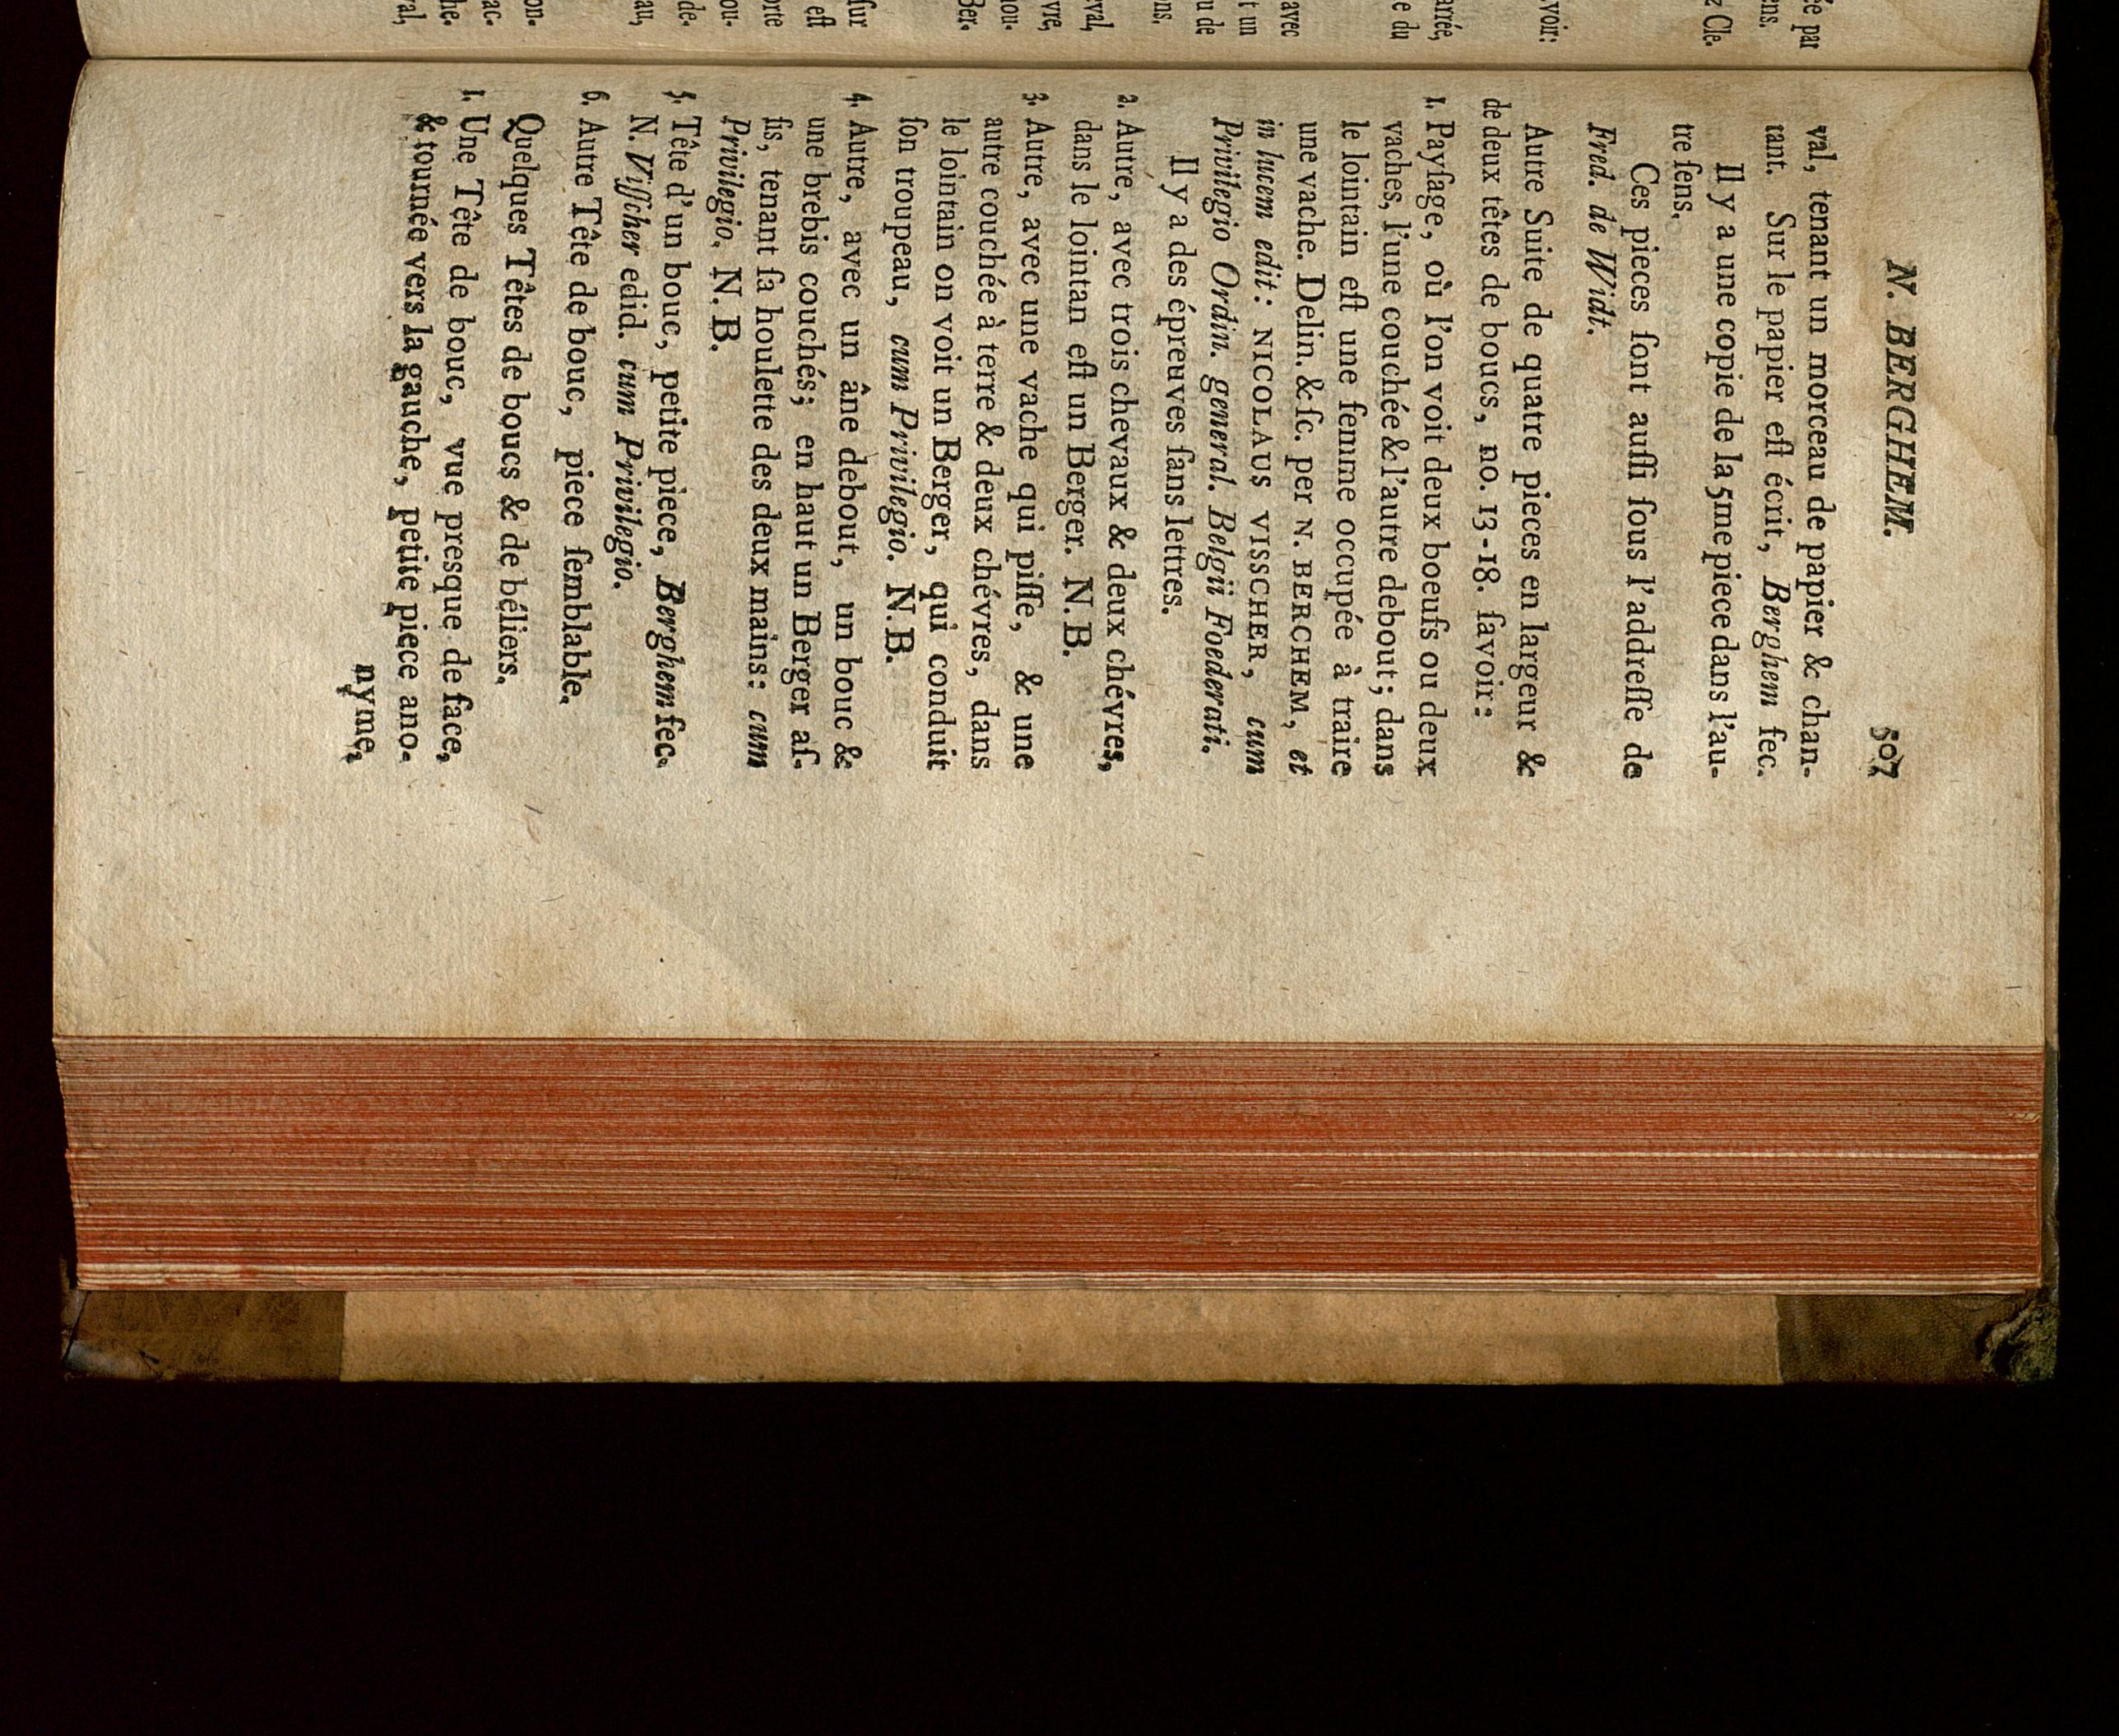 N. BERGHEM. 507
val, tenant un morceau de papier & chan-
tant. Sur le papier eſt écrit, Berghem fec.
Il y a une copie de la 5me piece dans l'au-
tre ſens.
Ces pieces ſont auſſi ſous l'addreſſe de
Fred. de Widt.
Autre Suite de quatre pieces en largeur &
de deux têtes de boucs, no. 13-18. ſavoir:
1. Payſage, où l'on voit deux boeufs ou deux
vaches, l'une couchée & l'autre debout; dans
le lointain eſt une femme occupée à traire
une vache. Delin. & ſc. per N. BERCHEM, et
in lucem edit: NICOLAUS VISSCHER, cum
Privilegio Ordin. general. Belgii Foederati.
Il y a des épreuves ſans lettres.
2. Autre, avec trois chevaux & deux chévres,
dans le lointan eſt un Berger. N. B.
3. Autre, avec une vache qui piſſe, & une
autre couchée à terre & deux chévres, dans
le lointain on voit un Berger, qui conduit
ſon troupeau, cum Privilegio. N. B.
4. Autre, avec un âne debout, un bouc &
une brebis couchés; en haut un Berger aſ-
ſis, tenant ſa houlette des deux mains: cum
Privilegio. N. B.
5. Tête d'un bouc, petite pièce, Berghem fec.
N. Viſſcher edid. cum Privilegio.
6. Autre Tête de bouc, piece ſemblable.
Quelques Têtes de boucs & de béliers.
1. Une Tête de bouc, vue presque de face,
& tournée vers la gauche, petite piece ano-
nyme,